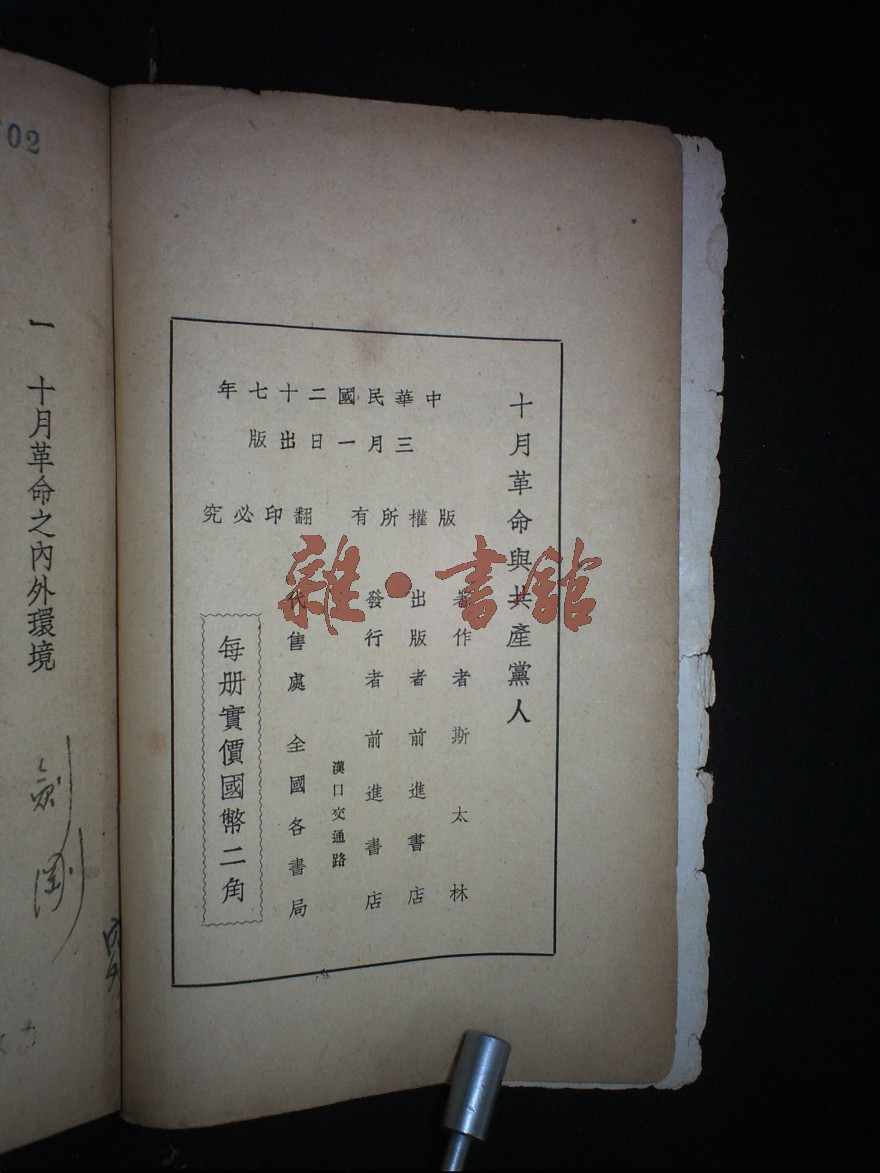 十月革命與共產黨人
中華民國二十七年
三月一日出版
版權所有 翻印必究
著作者 斯太林
出版者 前進書店
發行者 前進書店
漢口交通路
代售處 全國各書局
每册實價國幣二角
雜·書館
02
一 十月革命之內外環境